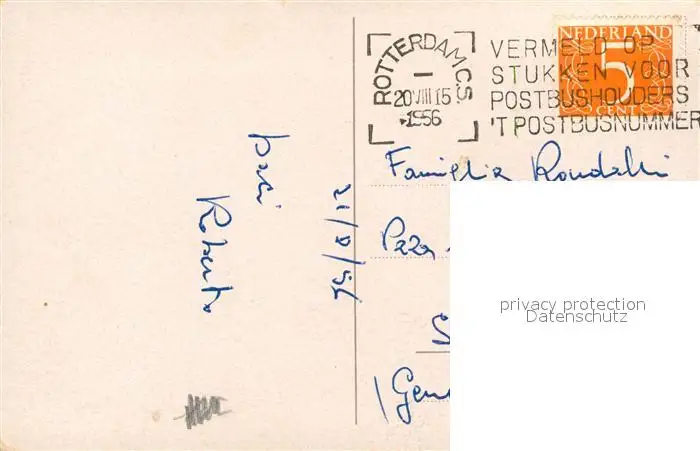 ROTTERDAM C.S.
I
20 VIII 15
1956
VERMELD OP
STUKKEN VOOR
POSTBUSHOUDERS
'T POSTBUSNUMMER
NEDERLAND
5
CENT
baci
Roberto
21/8/56
Famiglia
Pzza
(Gen
privacy protection
Datenschutz